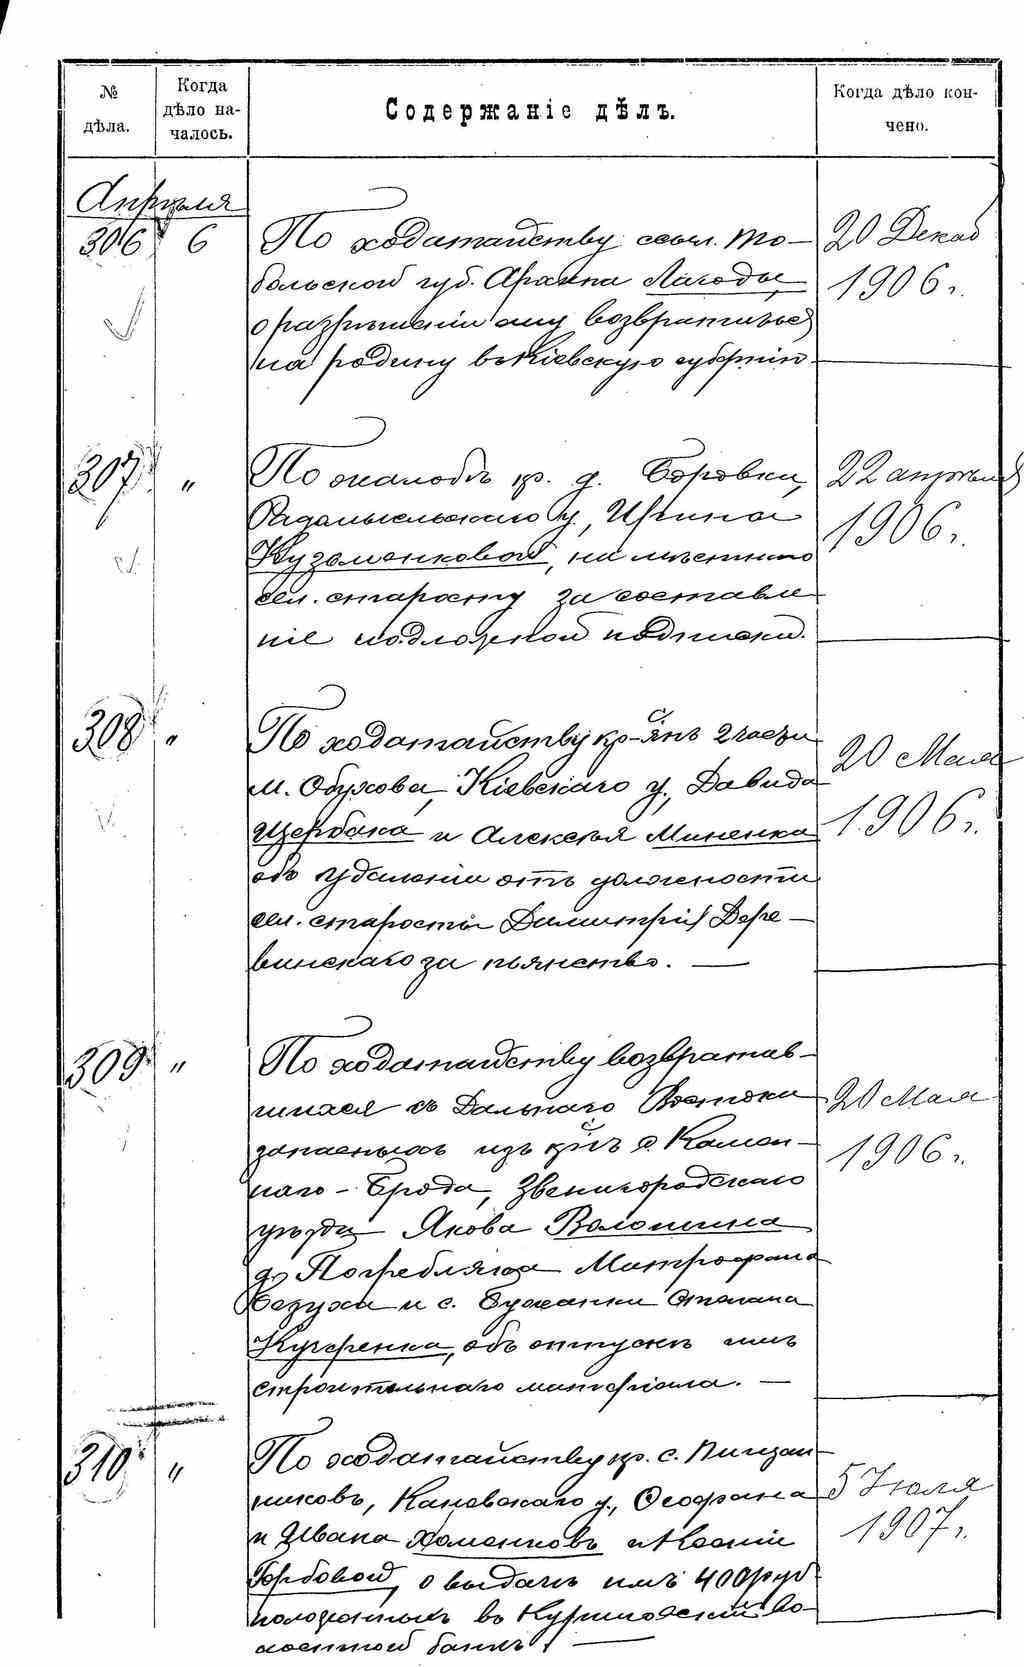 № дѣла.
Когда дѣло началось.
Содержаніе дѣлъ.
Когда дѣло кончено.
Апрѣля
306 6 По ходатайству ссыл. То-
больской губ. Архипа Лагоды,
о разрѣшеніи ему возвратиться
на родину въ Кіевскую губернію.
20 Декаб
1906 г.
307 " По жалобѣ кр. д. Боровки,
Радомысльскаго у., Ирины
Кузьменковой, на мѣстнаго
сел. старосту за составле
ніе подложной подписки.
22 апрѣля
1906 г.
308 " По ходатайству кр-янъ 2 части
м. Обухова, Кіевскаго у., Давида
Щербака и Алексѣя Миненка
объ удаленіи отъ должности
сел. старосты Димитрія Дере-
винскаго за пьянство. —
20 Мая
1906 г.
309 " По ходатайству возвратив-
шихся съ Дальняго Востока
запасныхъ изъ кр. с. Камен-
наго-Брода, Звенигородскаго
уѣзда Якова Волошина
д. Погребляка Митрофана
Безуха и с. Бужанки Степана
Кучеренка, объ отпускѣ имъ
строительнаго матеріала. —
20 Мая
1906 г.
310 " По ходатайству кр. с. Пищаль-
никовъ, Каневскаго у., Феофана
и Ивана Хоменковъ и Ксеніи
Горбовой, о выдачѣ имъ 400 руб
положенныхъ въ Куриловскій во-
лостной банкъ. —
5 Іюля
1907 г.